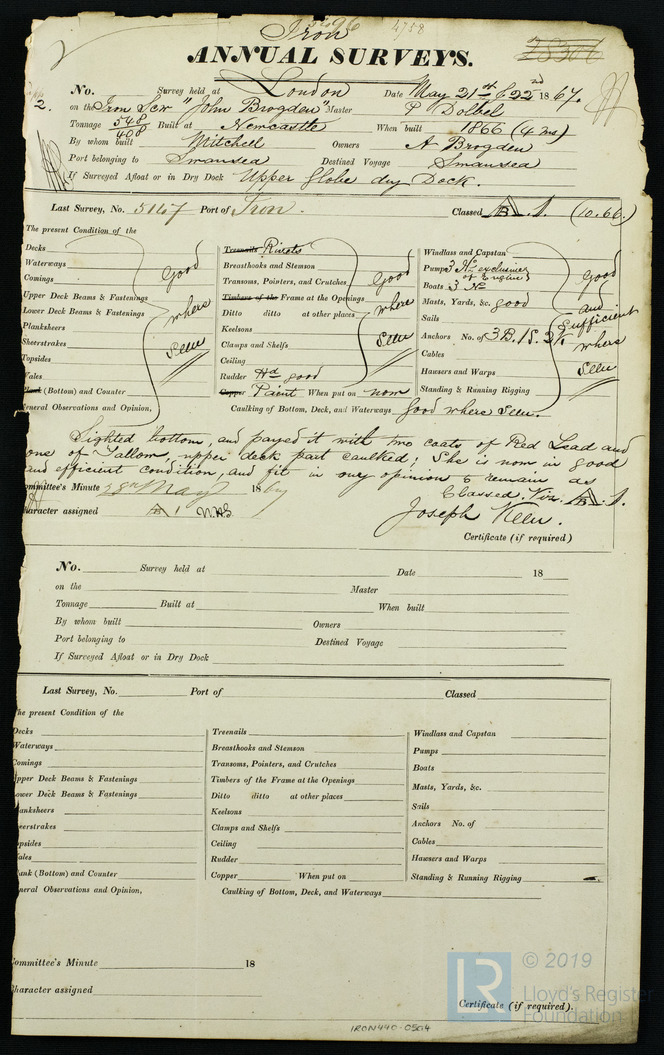 Iron 4758
ANNUAL SURVEYS.
No. Survey held at London Date May 21st & 22nd 1867.
2. on the Iron Scr "John Brogden" Master P Dolbel
Tonnage 548 / 408 Built at Newcastle When built 1866 (4 mo)
By whom built Mitchell Owners A Brogden
Port belonging to Swansea Destined Voyage Swansea
If Surveyed Afloat or in Dry Dock Upper Globe dry Dock.
Last Survey, No. 5147 Port of Iron. Classed A 1. (10.66.)
The present Condition of the
Decks
Waterways
Comings
Upper Deck Beams & Fastenings
Lower Deck Beams & Fastenings
Planksheers
Sheerstrakes
Topsides
Wales
Plank (Bottom) and Counter
General Observations and Opinion,
Good where seen
Treenails Rivets
Breasthooks and Stemson
Transoms, Pointers, and Crutches
Timbers of the Frame at the Openings
Ditto ditto at other places
Keelsons
Clamps and Shelfs
Ceiling
Rudder Hd good
Copper Paint When put on now
Good where seen
Caulking of Bottom, Deck, and Waterways Good where seen.
Windlass and Capstan
Pumps 3 No exclusive of Engines
Boats 3 No
Masts, Yards, &c. good
Sails
Anchors No. of 3B. 1S. 2K
Cables
Hawsers and Warps
Standing & Running Rigging
Good and sufficient where seen
Sighted bottom, and payed it with two coats of Red Lead and
one of Tallow, upper deck part caulked; She is now in good
and efficient condition, and fit in my opinion to remain as
Classed. Viz. A. 1.
Committee's Minute 28th May 1867
Character assigned A 1
Joseph Keen.
Certificate (if required)
No. Survey held at Date 18
on the Master
Tonnage Built at When built
By whom built Owners
Port belonging to Destined Voyage
If Surveyed Afloat or in Dry Dock
Last Survey, No. Port of Classed
The present Condition of the
Decks
Waterways
Comings
Upper Deck Beams & Fastenings
Lower Deck Beams & Fastenings
Planksheers
Sheerstrakes
Topsides
Wales
Plank (Bottom) and Counter
General Observations and Opinion,
Treenails
Breasthooks and Stemson
Transoms, Pointers, and Crutches
Timbers of the Frame at the Openings
Ditto ditto at other places
Keelsons
Clamps and Shelfs
Ceiling
Rudder
Copper When put on
Caulking of Bottom, Deck, and Waterways
Windlass and Capstan
Pumps
Boats
Masts, Yards, &c.
Sails
Anchors No. of
Cables
Hawsers and Warps
Standing & Running Rigging
Committee's Minute 18
Character assigned
Certificate (if required).
LR © 2019
Lloyd's Register
Foundation
IRON440-0504